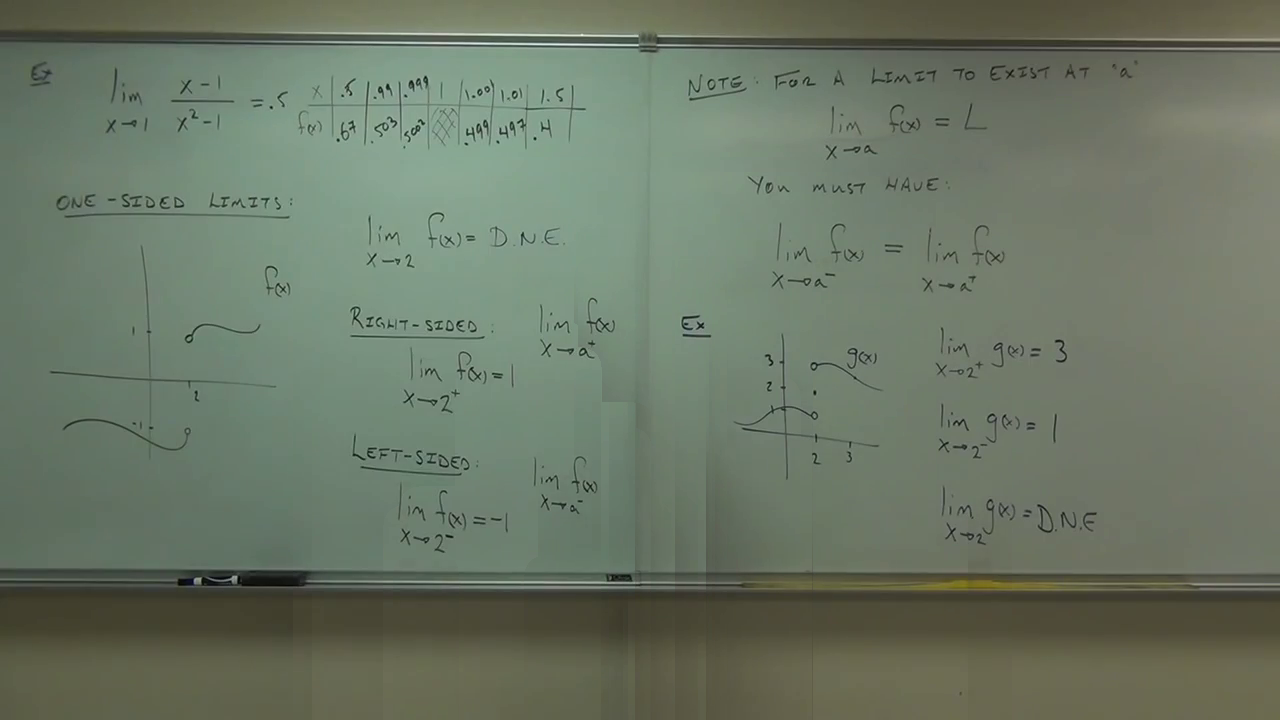 Ex
lim x→1 (x-1)/(x²-1) = .5
x | .5 | .99 | .999 | 1 | 1.001 | 1.01 | 1.5
f(x) | .67 | .503 | .5002 | | .499 | .497 | .4
ONE-SIDED LIMITS:
f(x)
1
2
-1
lim x→2 f(x) = D.N.E.
RIGHT-SIDED: lim x→a⁺ f(x)
lim x→2⁺ f(x) = 1
LEFT-SIDED: lim x→a⁻ f(x)
lim x→2⁻ f(x) = -1
NOTE: FOR A LIMIT TO EXIST AT "a"
lim x→a f(x) = L
YOU MUST HAVE:
lim x→a⁻ f(x) = lim x→a⁺ f(x)
Ex
g(x)
3
2
1
2 3
lim x→2⁺ g(x) = 3
lim x→2⁻ g(x) = 1
lim x→2 g(x) = D.N.E